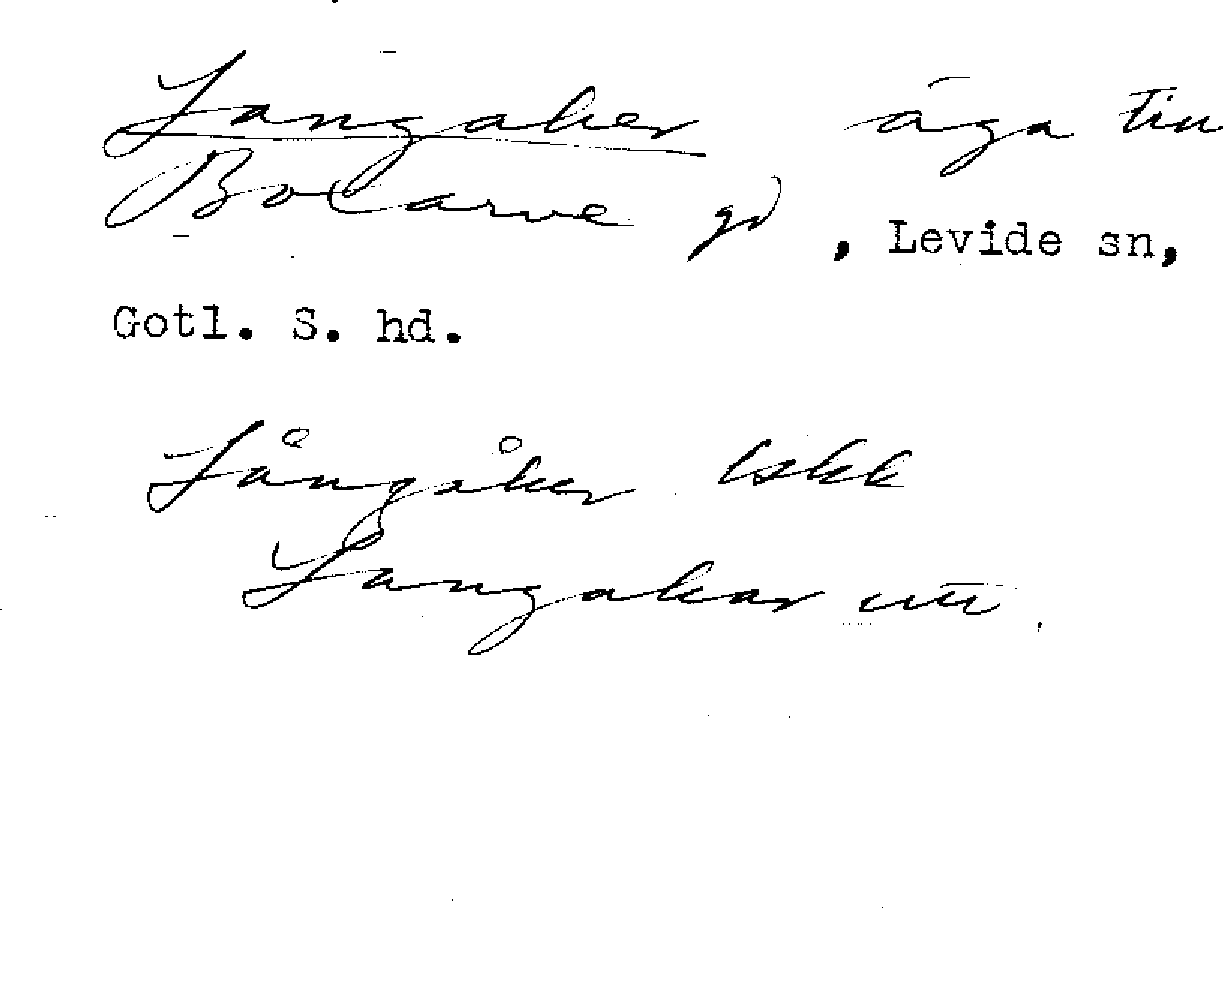 Langaker äga till
Botarve gd, Levide sn,
Gotl. S. hd.
Långåker Lskk
Langakar uti